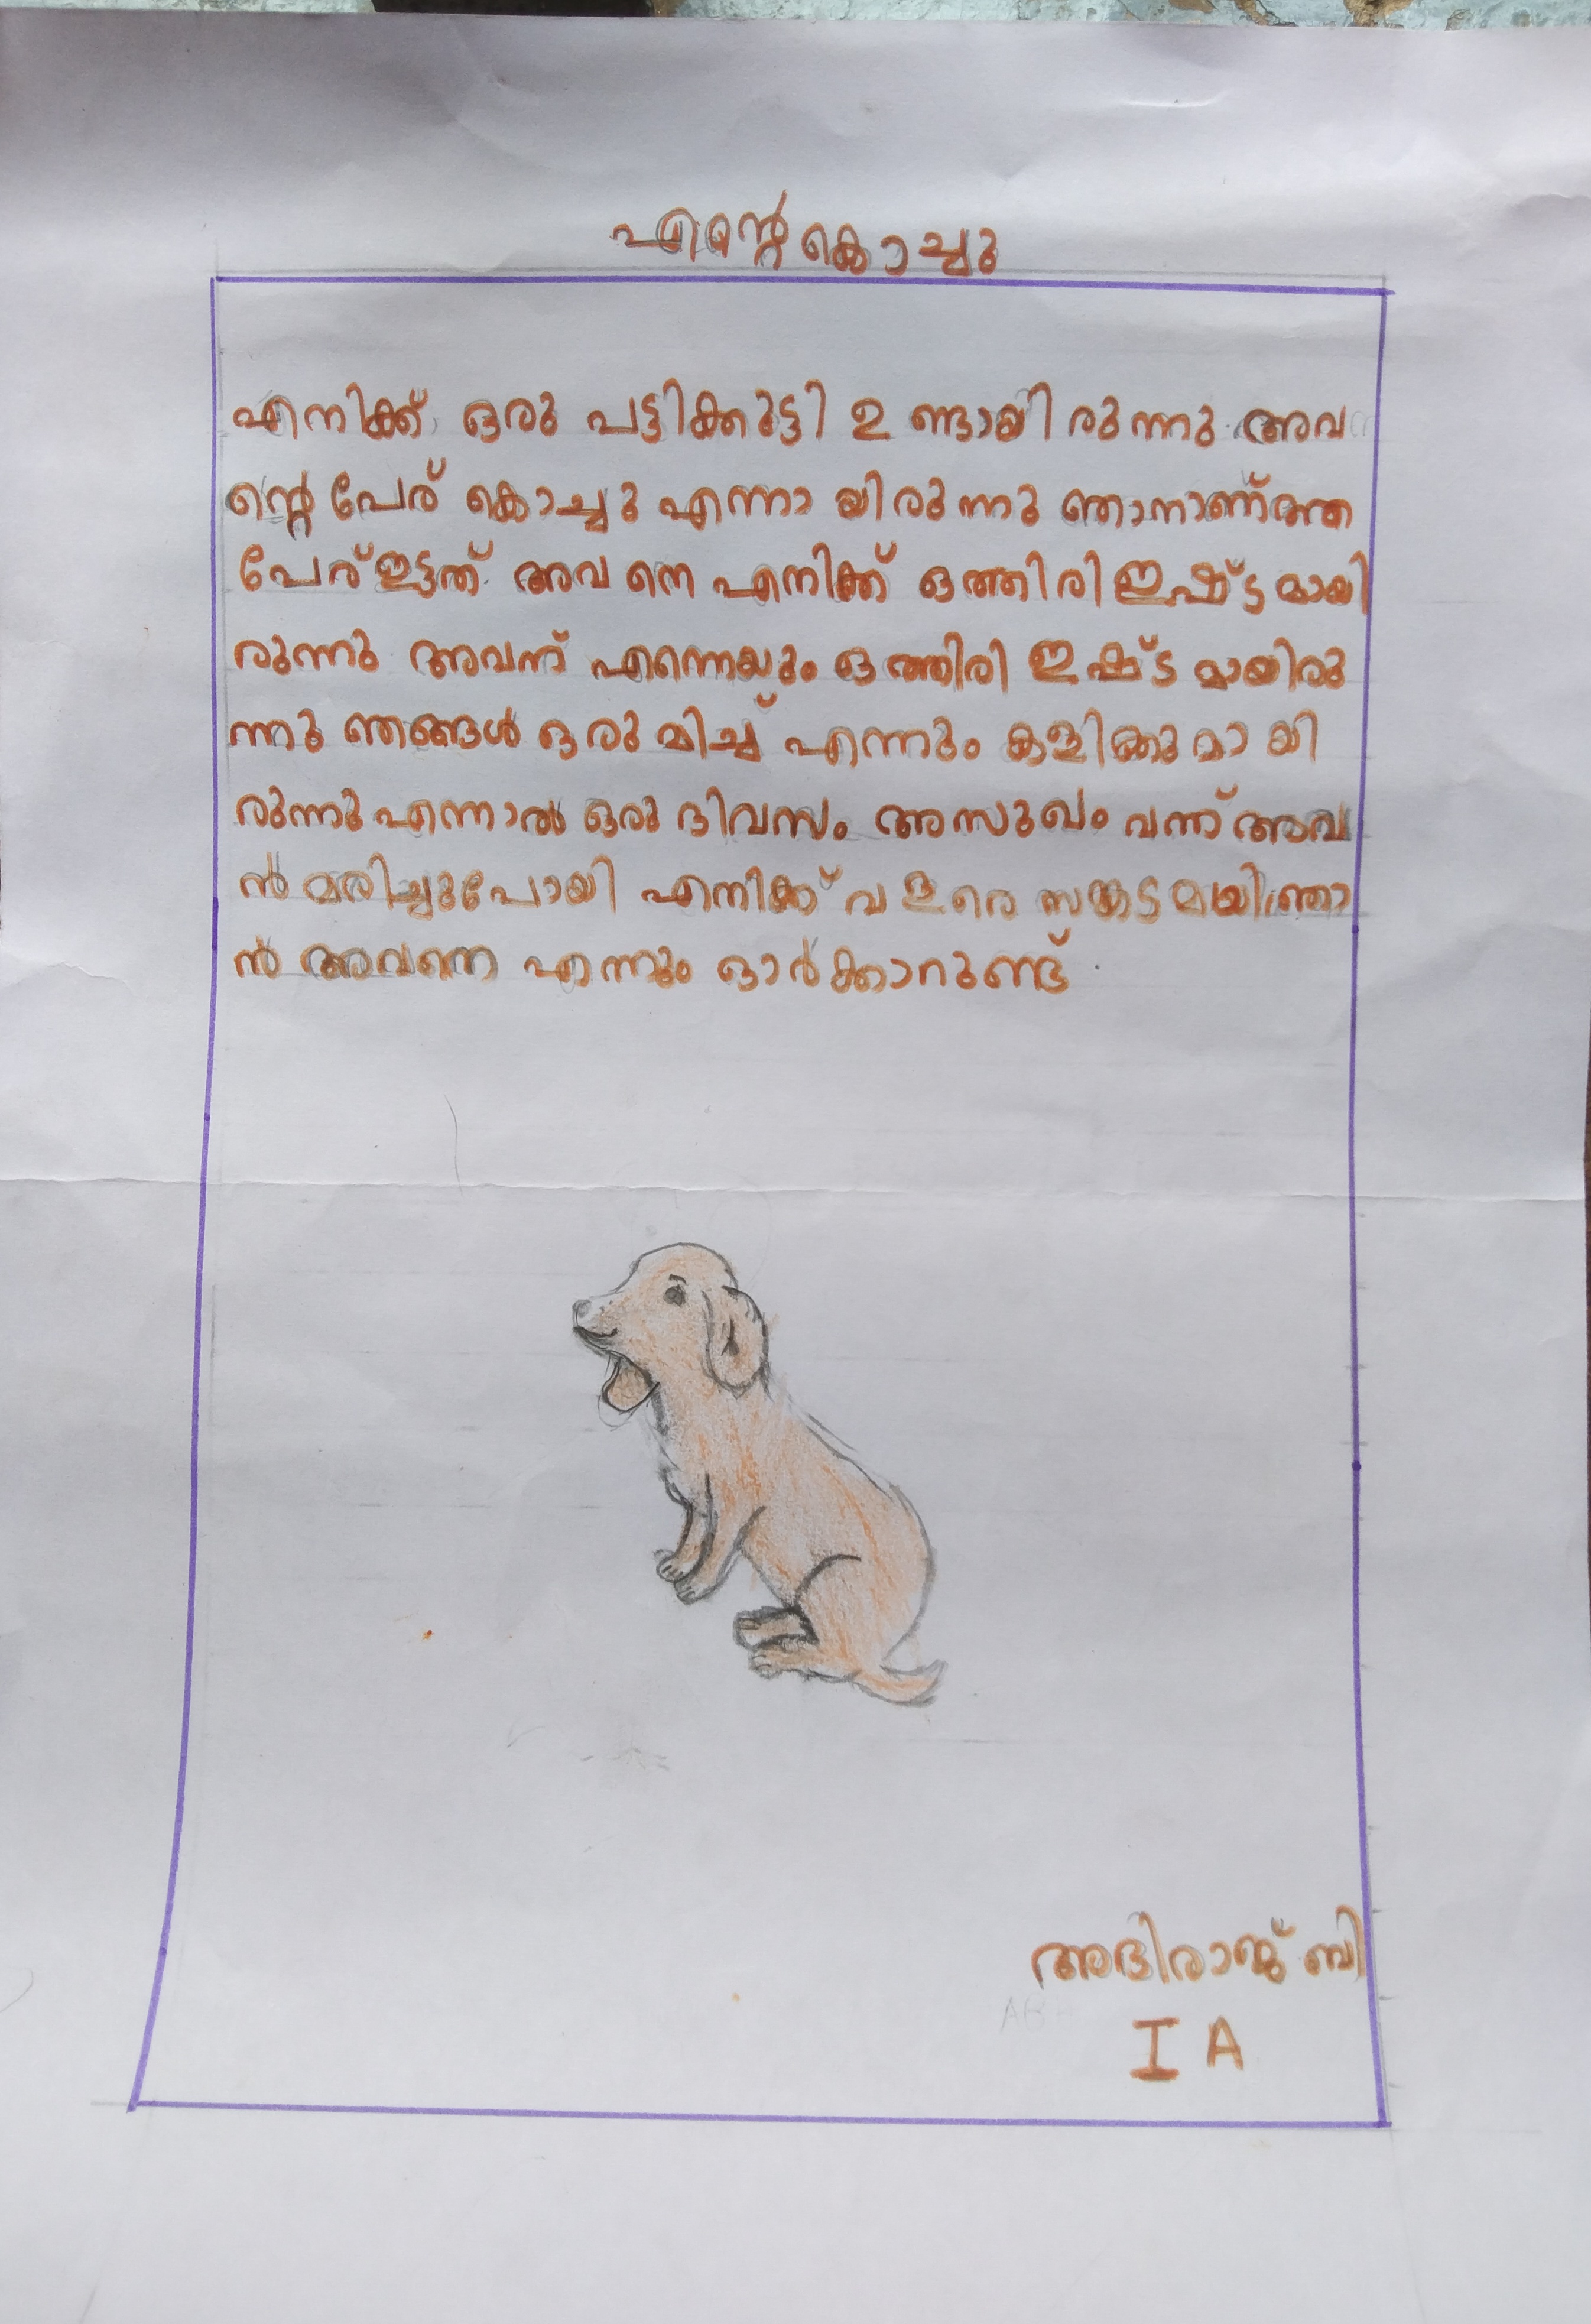 എന്റെ കൊച്ചു
എനിക്ക് ഒരു പട്ടിക്കുട്ടി ഉണ്ടായിരുന്നു അവ
ന്റെ പേര് കൊച്ചു എന്നായിരുന്നു ഞാനാണ്ത്ത
പേര് ഇട്ടത് അവനെ എനിക്ക് ഒത്തിരി ഇഷ്ട്ടമായി
രുന്നു അവന്ന് എന്നെയും ഒത്തിരി ഇഷ്ട്ടമായിരു
ന്നു ഞങ്ങൾ ഒരുമിച്ച് എന്നും കളിക്കുമായി
രുന്നു എന്നാൽ ഒരു ദിവസം അസുഖം വന്ന് അവ
ൻ മരിച്ചുപോയി എനിക്ക് വളരെ സങ്കടമായി ഞാ
ൻ അവന്നെ എന്നും ഓർക്കാറുണ്ട്.
അഭിരാജ് ബി
I A